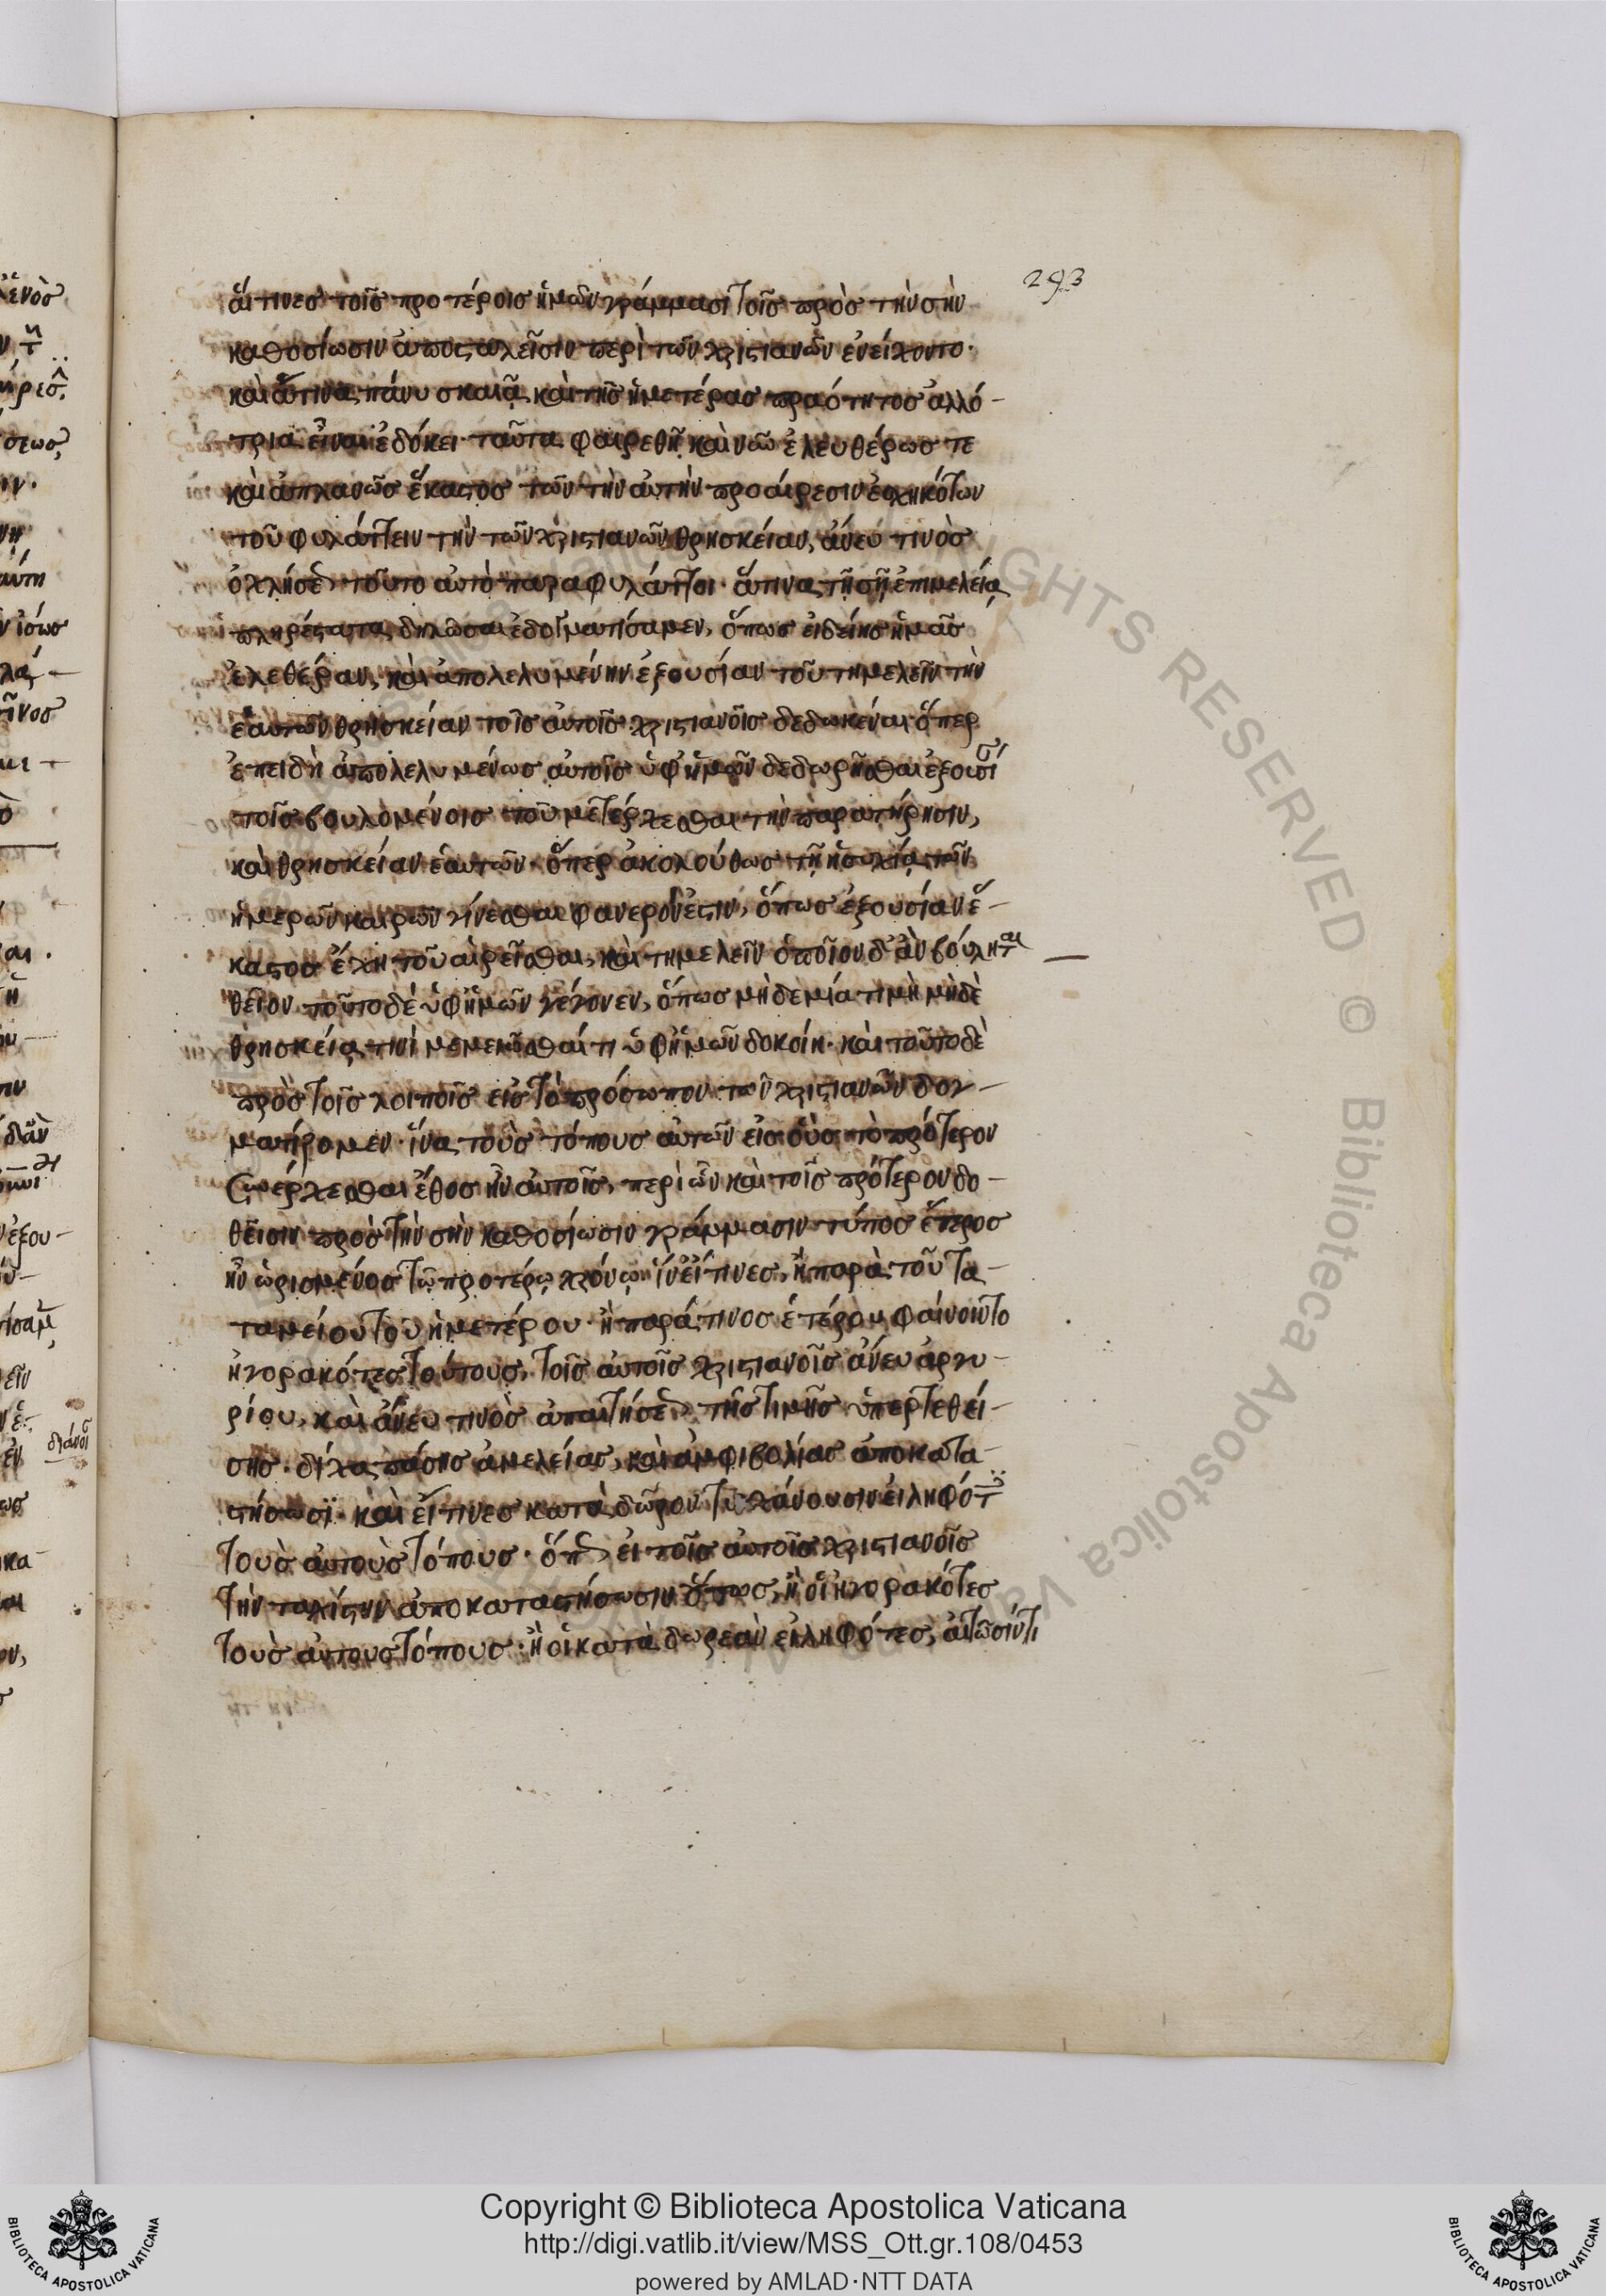 293
αἵ τινεσ τοῖσ προτέροισ ἡμῶν γράμμασι τοῖσ πρὸσ τὴν σὴν
καθοσίωσιν ἀποσταλεῖσιν περὶ τῶν χριστιανῶν ἐνείχοντο·
καὶ ἅτινα πάνυ σκαιᾷ καὶ τῆσ ἡμετέρασ πραότητοσ ἀλλό-
τρια εἶναι ἐδόκει· ταῦτα φαιρεθῇ καὶ νῦν ἐλευθέρωσ τε
καὶ ἁπλανῶσ ἕκαστοσ τῶν τὴν αὐτὴν προαίρεσιν ἐσχηκότων
τοῦ φυλάττειν τὴν τῶν χριστιανῶν θρησκείαν, ἄνευ τινὸσ
ὀχλήσεως τοῦτο αὐτὸ παραφυλάττοι· ἅτινα τῇ σῇ ἐπιμελείᾳ
πληρέστατα δηλῶσαι ἐδογματίσαμεν, ὅπωσ εἰδείησ ἡμᾶσ
ἐλεθέραν, καὶ ἀπολελυμένην ἐξουσίαν τοῦ τημελεῖν τὴν
ἑαυτῶν θρησκείαν τοῖσ αὐτοῖσ χριστιανοῖσ δεδωκέναι· ὅπερ
ἐπειδὴ ἀπολελυμένωσ αὐτοῖσ ὑφ ἡμῶν δεδωρῆσθαι ἐξουσί
τοῖσ βουλομένοισ τοῦ μετέρχεσθαι τὴν παρατήρησιν,
καὶ θρησκείαν ἑαυτῶν· ὅπερ ἀκολούθωσ τῇ ἡσυχίᾳ τῶν
ἡμερῶν καιρῶν γίνεσθαι φανερόν ἐστιν, ὅπωσ ἐξουσίαν ἕ-
καστοσ ἔχῃ τοῦ αἱρεῖσθαι, καὶ τημελεῖν ὁποῖον δ' ἂν βούληται
θεῖον τοῦτο δὲ ὑφ ἡμῶν γέγονεν, ὅπωσ μὴδεμία τιμῇ μὴδὲ
θρησκείᾳ τινὶ μεμειῶσθαί τι ὑφ ἡμῶν δοκοίη· καὶ τοῦτο δὲ
πρὸσ τοῖσ λοιποῖσ εἰσ τὸ πρόσωπον τῶν χριστιανῶν δογ-
ματίζομεν· ἵνα τοὺσ τόπουσ αὐτῶν εἰσ οὓσ τὸ πρότερον
συνέρχεσθαι ἔθοσ ἦν αὐτοῖσ, περὶ ὧν καὶ τοῖσ πρότερον δο-
θεῖσιν πρὸσ τὴν σὴν καθοσίωσιν γράμμασιν τύποσ ἕτεροσ
ἦν ὡρισμένοσ τῷ προτέρῳ χρόνῳ· ἵν' εἴ τινεσ, ἢ παρὰ τοῦ τα-
ταμείου τοῦ ἡμετέρου· ἢ παρά τινοσ ἑτέρου φαίνοιντο
ἠγορακότεσ τούτουσ, τοῖσ αὐτοῖσ χριστιανοῖσ ἄνευ ἀργυ-
ρίου, καὶ ἄνευ τινὸσ ἀπαιτήσεως τῆσ τιμῆσ ὑπερτεθεί-
σησ· δίχα πάσησ ἀμελείασ, καὶ ἀμφιβολίασ ἀποκατα-
στήσωσϊ· καὶ εἴ τινεσ κατὰ δῶρον τυγχάνουσιν εἰληφότ
τοὺσ αὐτοὺσ τόπουσ· ὅπως εἰ τοῖσ αὐτοῖσ χριστιανοῖσ
τὴν ταχίστην ἀποκαταστήσωσιν οὕτωσ, ἢ οἱ ἠγορακότεσ
τοὺσ αὐτουσ τόπουσ· ἢ οἱ κατὰ δωρεὰν εἰληφότεσ, αἰτῶσίν τι
Copyright © Biblioteca Apostolica Vaticana
http://digi.vatlib.it/view/MSS_Ott.gr.108/0453
powered by AMLAD·NTT DATA